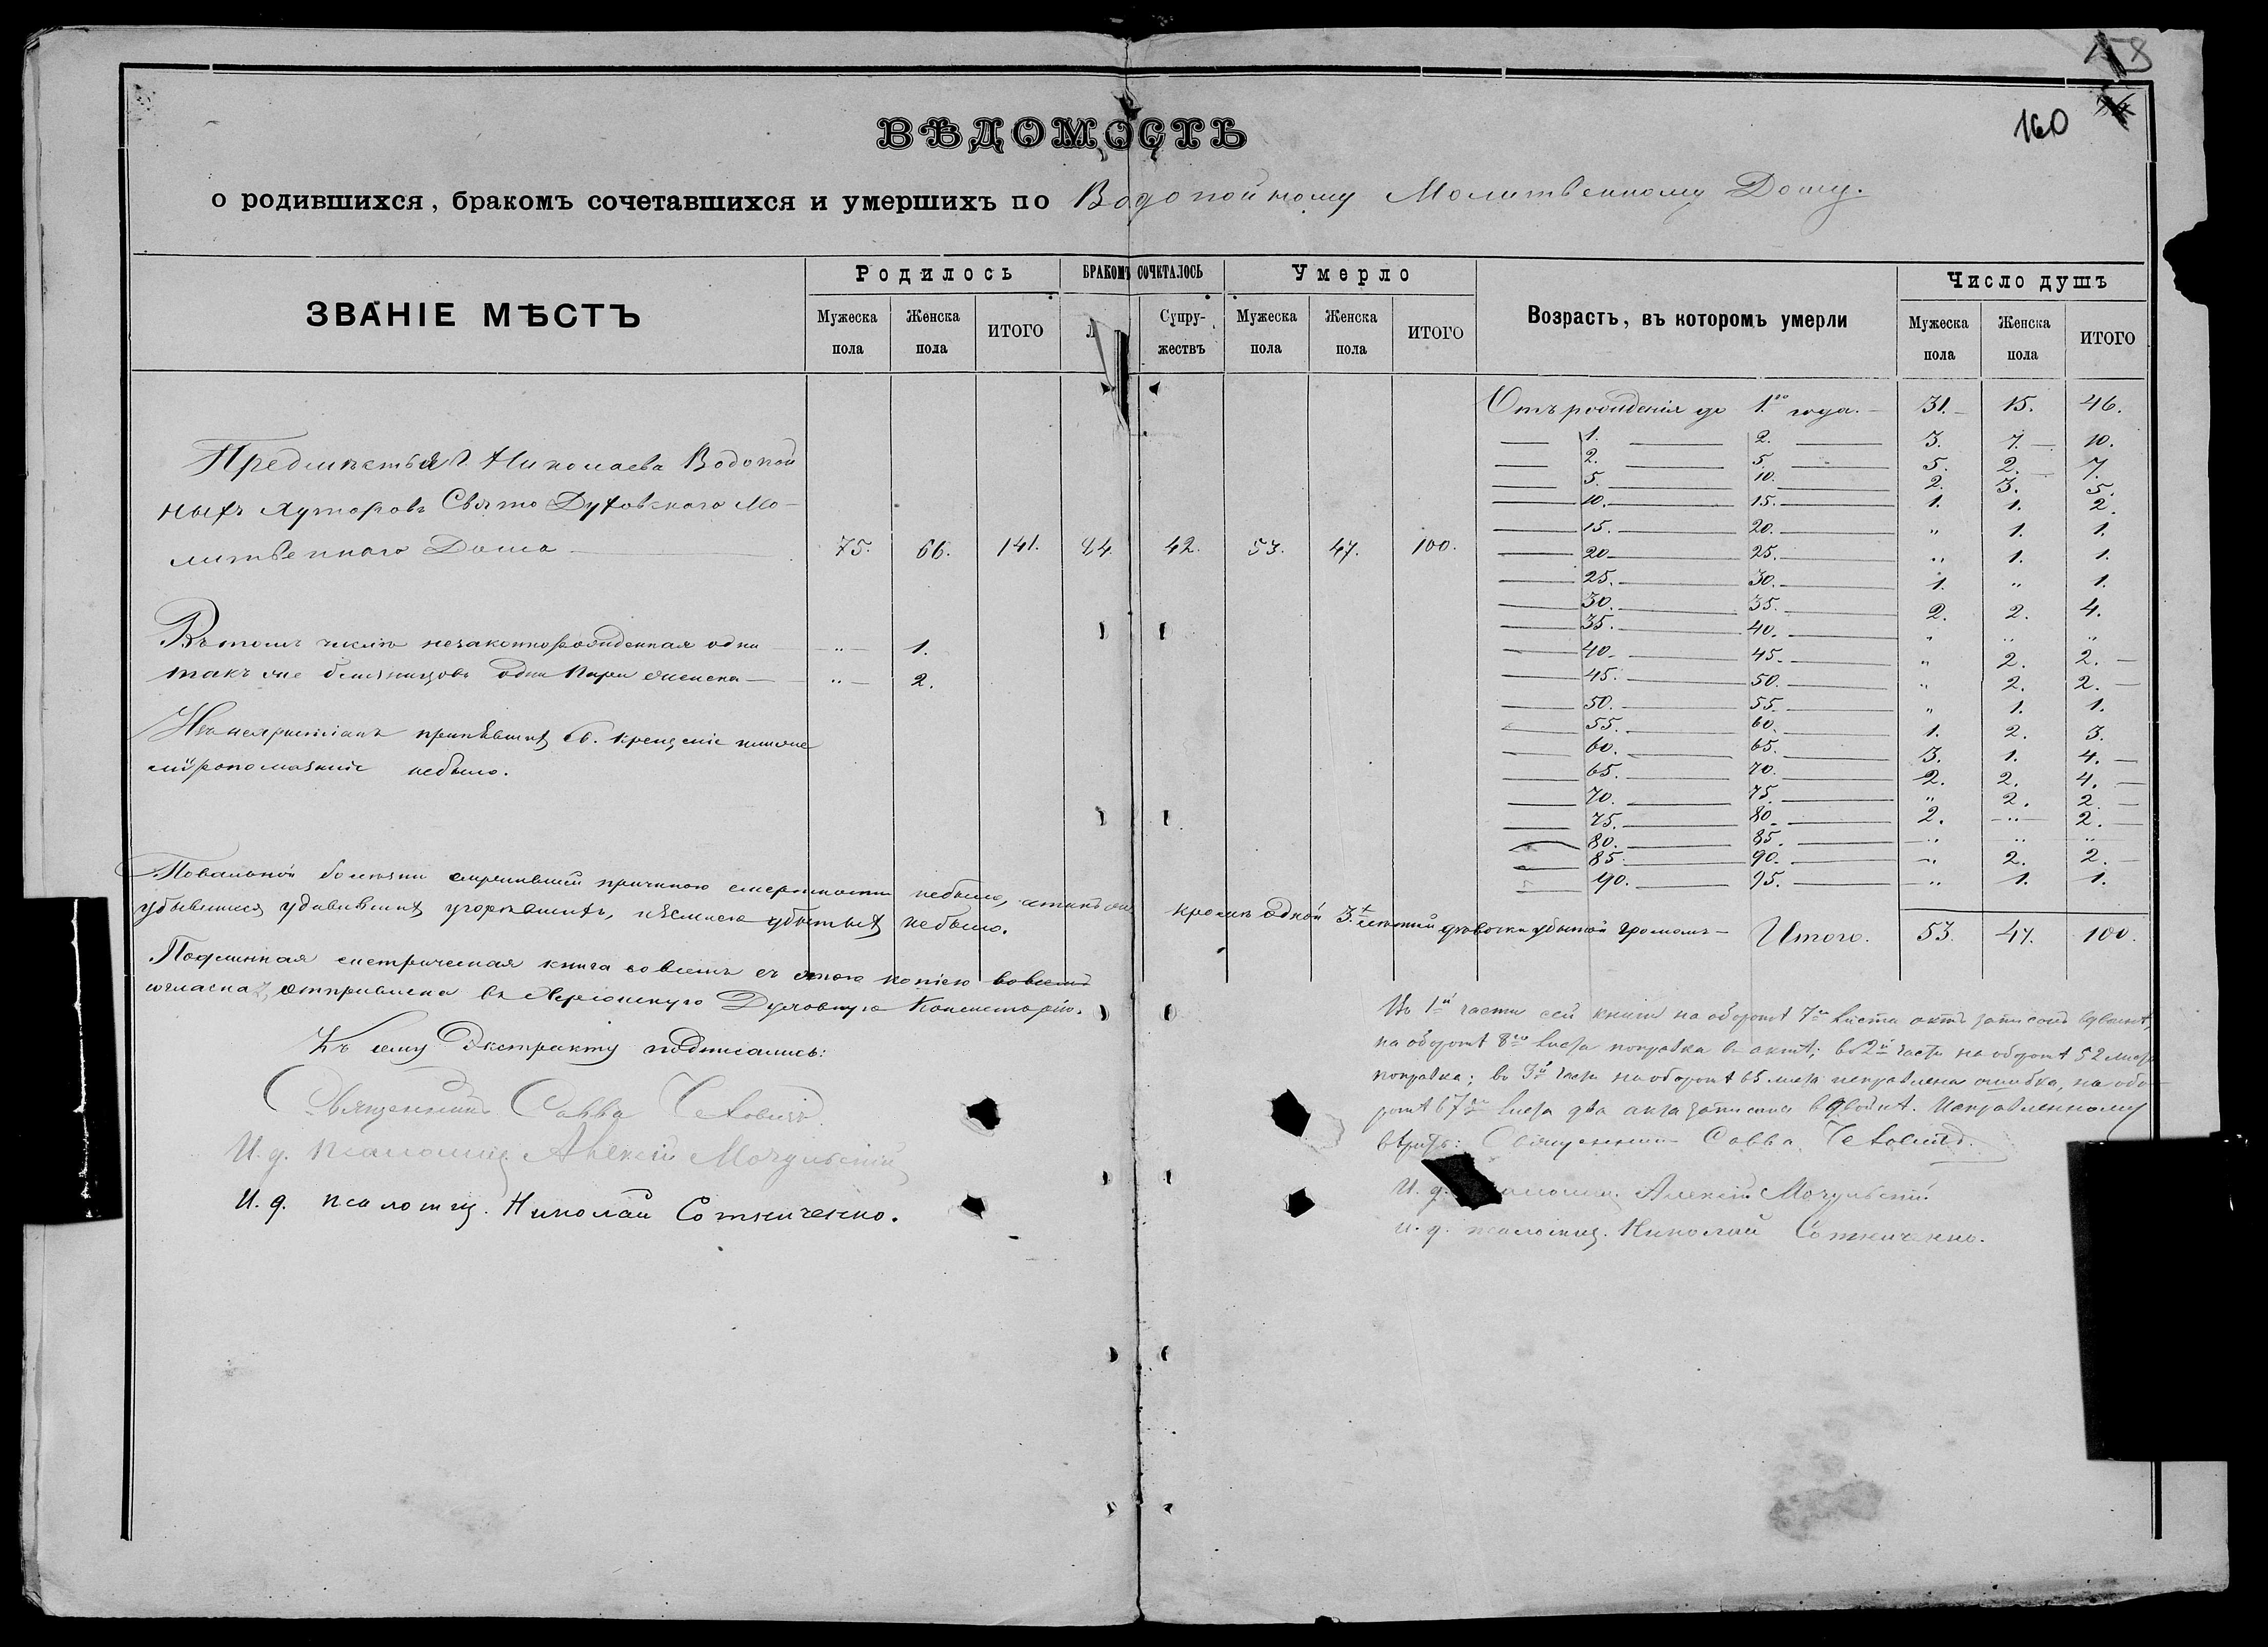 160
ВѢДОМОСТЬ
о родившихся, бракомъ сочетавшихся и умершихъ по Водопойному Молитвенному Дому.
ЗВАНІЕ МѢСТЪ
Родилось
БРАКОМЪ СОЧЕТАЛОСЬ
Умерло
Возрастъ, въ которомъ умерли
Число душъ
Мужеска пола
Женска пола
ИТОГО
Супру-жествъ
Мужеска пола
Женска пола
ИТОГО
Мужеска пола
Женска пола
ИТОГО
Предмѣстья г. Николаева Водопой
ныхъ хуторовъ Свято Духовскаго Мо-
литвеннаго Дома 75. 66. 141. 84. 42. 53. 47. 100.
Въ томъ числѣ незаконнорожденная одна „ 1.
такъ же близнецовъ одна пара женска „ 2.
Изъ нехристіанъ принявшихъ Св. Крещеніе
мѵропомазаніе небыло.
Отъ рожденія до 1.го года. 31. 15. 46.
1. 2. 3. 7. 10.
2. 5. 5. 2. 7.
5. 10. 2. 3. 5.
10. 15. 1. 1. 2.
15. 20. „ 1. 1.
20. 25. „ 1. 1.
25. 30. 1. „ 1.
30. 35. 2. 2. 4.
35. 40. „ „ „
40. 45. „ 2. 2.
45. 50. „ 2. 2.
50. 55. „ 1. 1.
55. 60. 1. 2. 3.
60. 65. 3. 1. 4.
65. 70. 2. 2. 4.
70. 75. „ 2. 2.
75. 80. 2. „ 2.
80. 85. „ „ „
85. 90. „ 2. 2.
90. 95. „ 1. 1.
Итого. 53. 47. 100.
Повальной болѣзни служившей причиною смертности небыло,
удавившихъ угорѣвшихъ, убитыхъ небыло. кромѣ одной 3.х лѣтней дѣвочки убитой громомъ
Подлинная метрическая книга во всемъ съ этою копіею во всемъ
согласна, отправлена въ Херсонскую Духовную Консисторію.
Къ сему Экстракту подписались:
Священникъ Савва
И. д. псаломщ. Алексій Мочульскій
И. д. псаломщ. Николай Сотниченко.
Въ 1й части сей книги на оборотѣ 7го листа актъ записанъ вдвойнѣ,
на оборотѣ 8го листа поправка въ актѣ; во 2й части на оборотѣ 52 листа
поправка; въ 3й части на оборотѣ 65 листа исправлена ошибка, на обо-
ротѣ 67го листа два акта записаны вдвойнѣ. Исправленному
вѣрить: Священникъ Савва
И. д. Алексій Мочульскій
И. д. псаломщ. Николай Сотниченко.